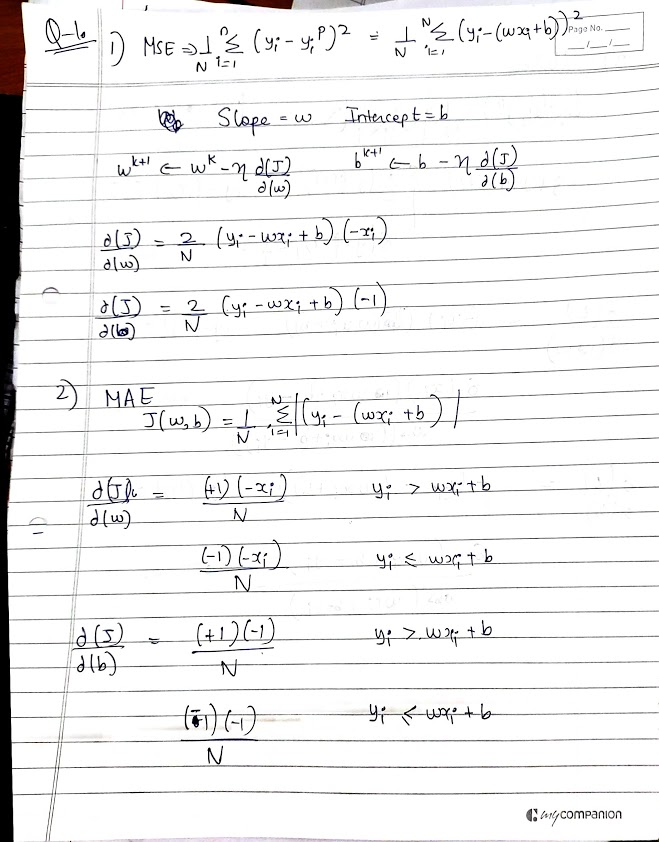 Q-1.
1) MSE ⇒ 1/N Σ_{i=1}^{n} (y_i - y_i^p)^2 = 1/N Σ_{i=1}^{N} (y_i - (wx_i + b))^2
Page No.
Slope = w Intercept = b
w^{k+1} ← w^k - η ∂(J)/∂(w) b^{k+1} ← b - η ∂(J)/∂(b)
∂(J)/∂(w) = 2/N (y_i - wx_i + b) (-x_i)
∂(J)/∂(b) = 2/N (y_i - wx_i + b) (-1)
2) MAE
J(w,b) = 1/N Σ_{i=1}^{N} |(y_i - (wx_i + b)|
∂(J)/∂(w) = (+1)(-x_i)/N y_i > wx_i + b
(-1)(-x_i)/N y_i ≤ wx_i + b
∂(J)/∂(b) = (+1)(-1)/N y_i > wx_i + b
(-1)(-1)/N y_i ≤ wx_i + b
mycompanion